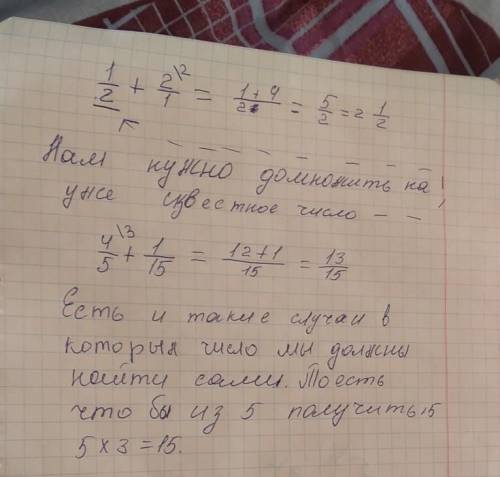 1/2 + 2\2/1 = 1+4/2 = 5/2 = 2 1/2
Нам нужно домножить на
уже известное число - -
4\3/5 + 1/15 = 12+1/15 = 13/15
Есть и такие случаи в
которых число мы должны
найти сами. Тоесть
что бы из 5 получить 15
5 x 3 = 15.